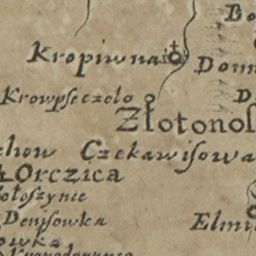 Bo
Kropiwna
Dom
Krowpseczelo
D
Złotonos
chow Czekawisowa
Orczica
ołoszynce
Denisowka
Elmi
owka